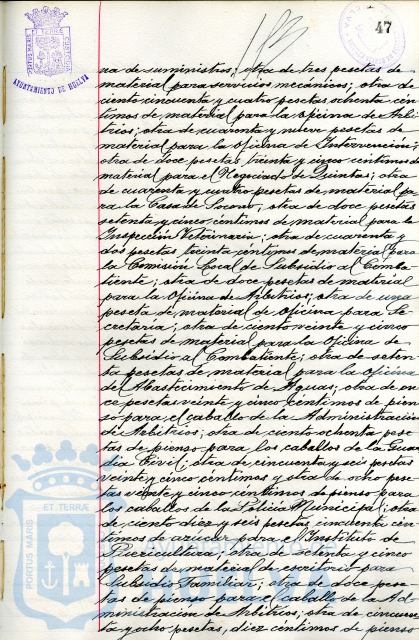 47
PORTUS MARIS ET TERRÆ CUSTODIA
AYUNTAMIENTO DE HUELVA
ra de suministros; otra de tres pesetas de
material para servicios mecánicos; otra de
ciento cincuenta y cuatro pesetas ochenta cén-
timos de material para la oficina de Arbi-
trios; otra de cuarenta y nueve pesetas de
material para la oficina de Intervención;
otra de doce pesetas treinta y cinco céntimos de
material para el Negociado de Quintas; otra
de cuarenta y cuatro pesetas de material pa-
ra la Casa de Socorro; otra de doce pesetas
setenta y cinco céntimos de material para la
Inspección Veterinaria; otra de cuarenta y
dos pesetas treinta céntimos de material para
la Comisión Local de Subsidio al Comba-
tiente; otra de doce pesetas de material
para la Oficina de Arbitrios; otra de una
peseta de material de oficina para Se-
cretaria; otra de ciento veinte y cinco
pesetas de material para la Oficina de
Subsidio al Combatiente; otra de seten-
ta pesetas de material para la oficina
de Abastecimiento de Aguas; otra de on-
ce pesetas veinte y cinco céntimos de pien-
so para el caballo de la Administración
de Arbitrios; otra de ciento ochenta pese-
tas de pienso para los caballos de la Guar-
dia Civil; otra de cincuenta y seis pesetas
veinte y cinco céntimos y otra de ocho pese-
tas veinte y cinco céntimos de pienso para
los caballos de la Policía Municipal; otra
de ciento diez y seis pesetas cincuenta cén-
timos de azúcar para el Instituto de
Puericultura; otra de setenta y cinco
pesetas de material de escritorio para
Subsidio Familiar; otra de doce pese-
tas de pienso para el caballo de la Ad-
ministración de Arbitrios; otra de cincuen-
ta y ocho pesetas, diez céntimos de pienso
PORTUS MARIS ET TERRÆ
Ayuntamiento de